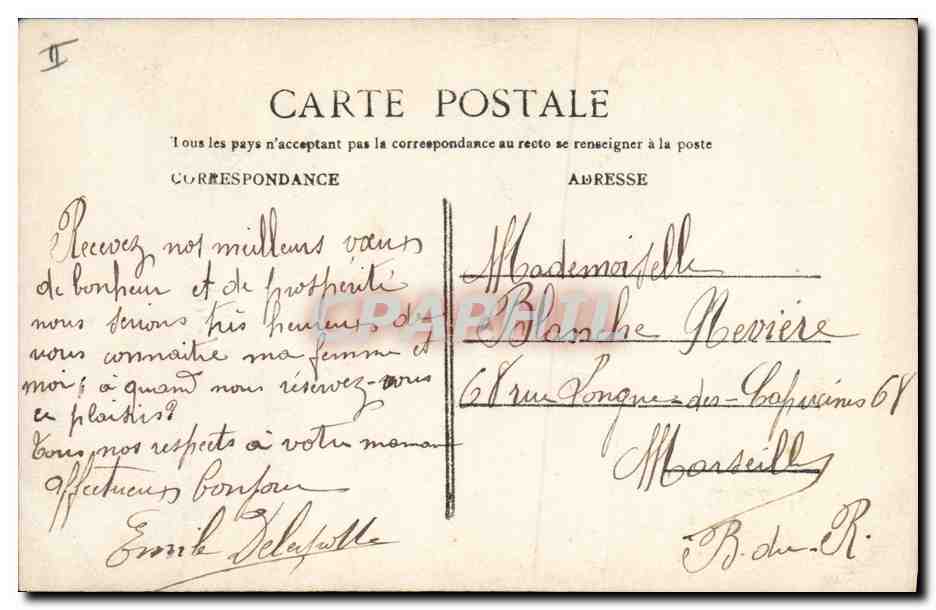 II
CARTE POSTALE
Tous les pays n'acceptant pas la correspondance au recto se renseigner à la poste
CORRESPONDANCE
ADRESSE
Recevez nos meilleurs vœux
de bonheur et de prospérité
nous serions très heureux de
vous connaitre ma femme et
moi; à quand nous réservez-vous
ce plaisir?
Tous nos respects à votre maman
affectueux bonjour
Emile
Mademoiselle
Blanche Nevière
68 rue Longue-des-Capucines 68
Marseille
B.-du-R.
CPAPHIL